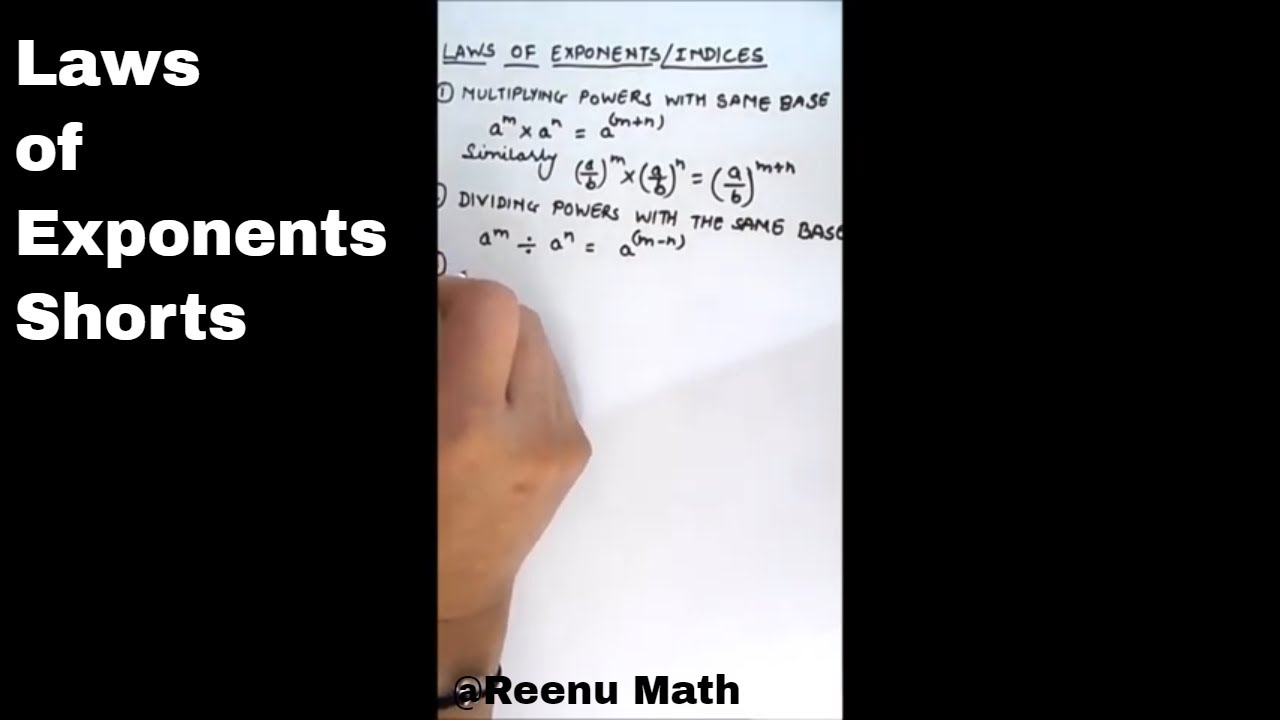 Laws
of
Exponents
Shorts
LAWS OF EXPONENTS/INDICES
① MULTIPLYING POWERS WITH SAME BASE
aᵐ × aⁿ = a⁽ᵐ⁺ⁿ⁾
Similarly (a/b)ᵐ × (a/b)ⁿ = (a/b)ᵐ⁺ⁿ
DIVIDING POWERS WITH THE SAME BASE
aᵐ ÷ aⁿ = a⁽ᵐ⁻ⁿ⁾
@Reenu Math